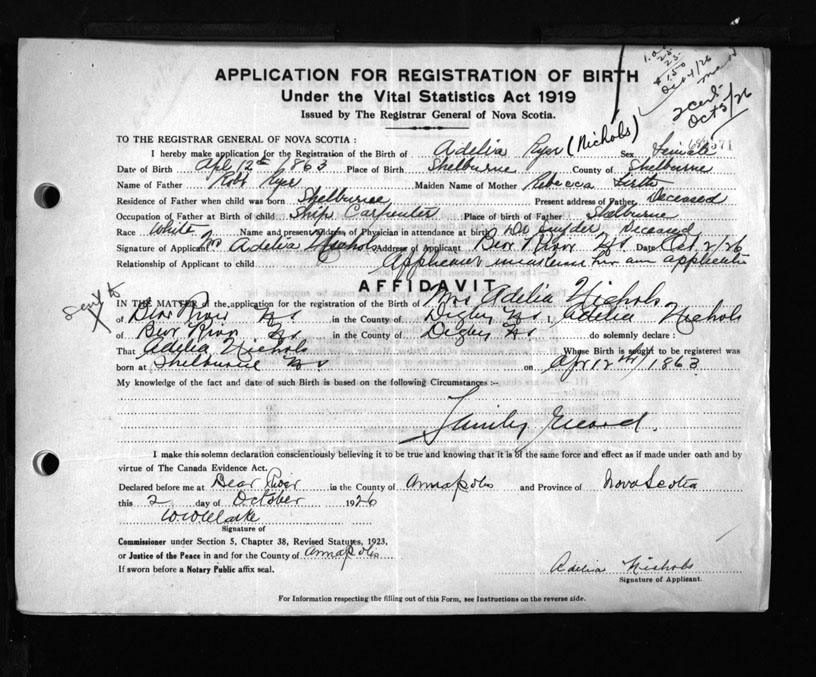 APPLICATION FOR REGISTRATION OF BIRTH
Under the Vital Statistics Act 1919
Issued by The Registrar General of Nova Scotia.
$1.50
Oct 4/26
2 cert.
Oct 5/26
TO THE REGISTRAR GENERAL OF NOVA SCOTIA :
I hereby make application for the Registration of the Birth of Adelia Ryer (Nichols) Sex Female
Date of Birth Apl 12th 1863 Place of Birth Shelburne County of Shelburne
Name of Father Robt Ryer Maiden Name of Mother Rebecca Firth
Residence of Father when child was born Shelburne Present address of Father Deceased
Occupation of Father at Birth of child Ship Carpenter Place of birth of Father Shelburne
Race White Name and present address of Physician in attendance at birth Dr Snyder, Deceased
Signature of Applicant Adelia Nichols Address of Applicant Bear River NS Date Oct 2/26
Relationship of Applicant to child
AFFIDAVIT
Sent to
IN THE MATTER of the application for the registration of the Birth of Mrs Adelia Nichols
of Bear River NS in the County of Digby NS I, Adelia Nichols
of Bear River NS in the County of Digby NS do solemnly declare :
That Adelia Nichols Whose Birth is sought to be registered was
born at Shelburne NS on Apr 12th / 1863
My knowledge of the fact and date of such Birth is based on the following Circumstances :-
Family Record.
I make this solemn declaration conscientiously believing it to be true and knowing that it is of the same force and effect as if made under oath and by
virtue of The Canada Evidence Act.
Declared before me at Bear River in the County of Annapolis and Province of Nova Scotia
this 2 day of October 1926
W.W. Clarke
Signature of
Commissioner under Section 5, Chapter 38, Revised Statutes, 1923,
or Justice of the Peace in and for the County of Annapolis
If sworn before a Notary Public affix seal.
Adelia Nichols
Signature of Applicant.
For Information respecting the filling out of this Form, see Instructions on the reverse side.